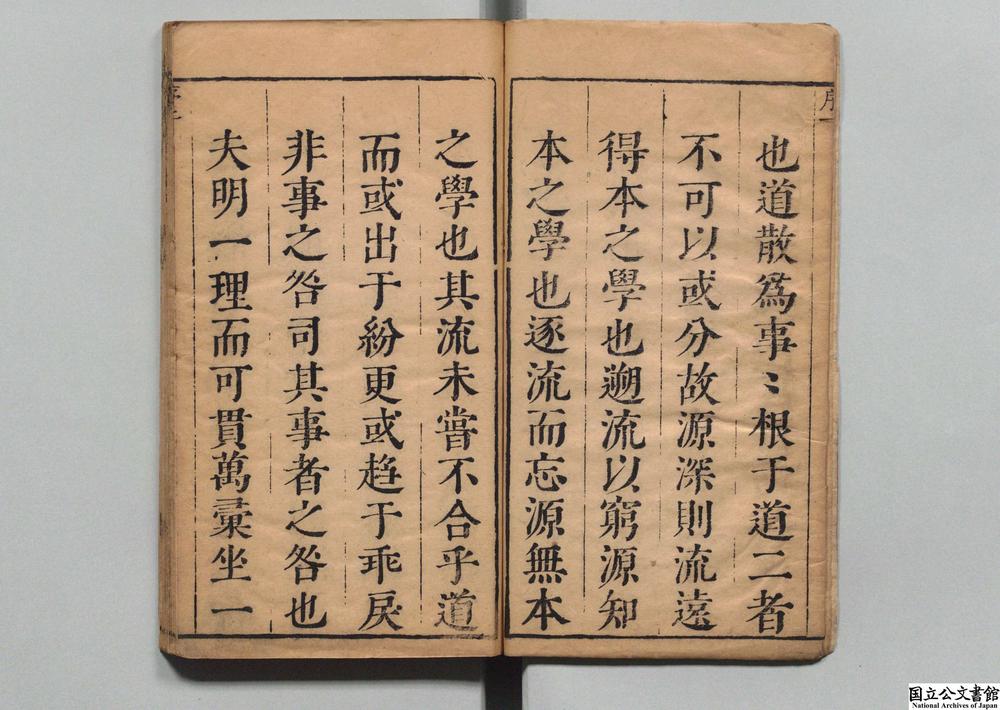 也道散爲事〻根于道二者
不可以或分故源深則流遠
得本之學也遡流以窮源知
本之學也逐流而忘源無本
之學也其流未嘗不合乎道
而或出于紛更或趋于乖戾
非事之咎司其事者之咎也
夫明一理而可貫萬彙坐一
国立公文書館
National Archives of Japan